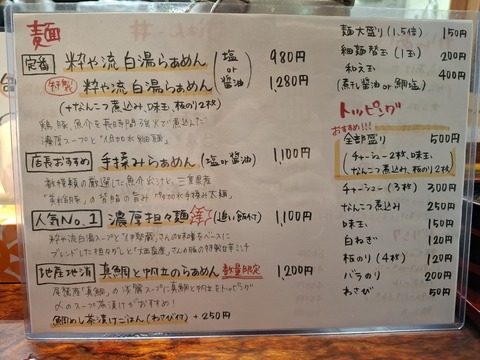 麺
定番 粋や流白湯らぁめん (塩 or 醤油) 980円
特製 粋や流白湯らぁめん 1,280円
(+なんこつ煮込み、味玉、板のり2枚)
鶏、豚、魚介を長時間強火で煮込んだ
濃厚スープと
店長おすすめ 手揉みらぁめん (塩 or 醤油) 1,100円
手揉み太麺。
人気No.1 濃厚担々麺 (追い飯付) 1,100円
粋や流白湯スープと
ブレンドした担々ダレと
地産地消 真鯛と帆立のらぁめん 数量限定 1,200円
尾鷲産「真鯛」の淡麗スープに真鯛と帆立をトッピング
〆のスープ茶漬けがおすすめ!
鯛めし茶漬けごはん(わさび付) +250円
麺大盛り(1.5倍) 150円
細麺替玉(1玉) 200円
和え玉 400円
(煮干し醤油 or 鯛塩)
トッピング
おすすめ!!!
全部盛り 500円
(チャーシュー2枚、味玉、
なんこつ煮込み、板のり2枚)
チャーシュー(3枚) 300円
なんこつ煮込み 250円
味玉 150円
白ねぎ 120円
板のり(4枚) 120円
バラのり 200円
わさび 50円